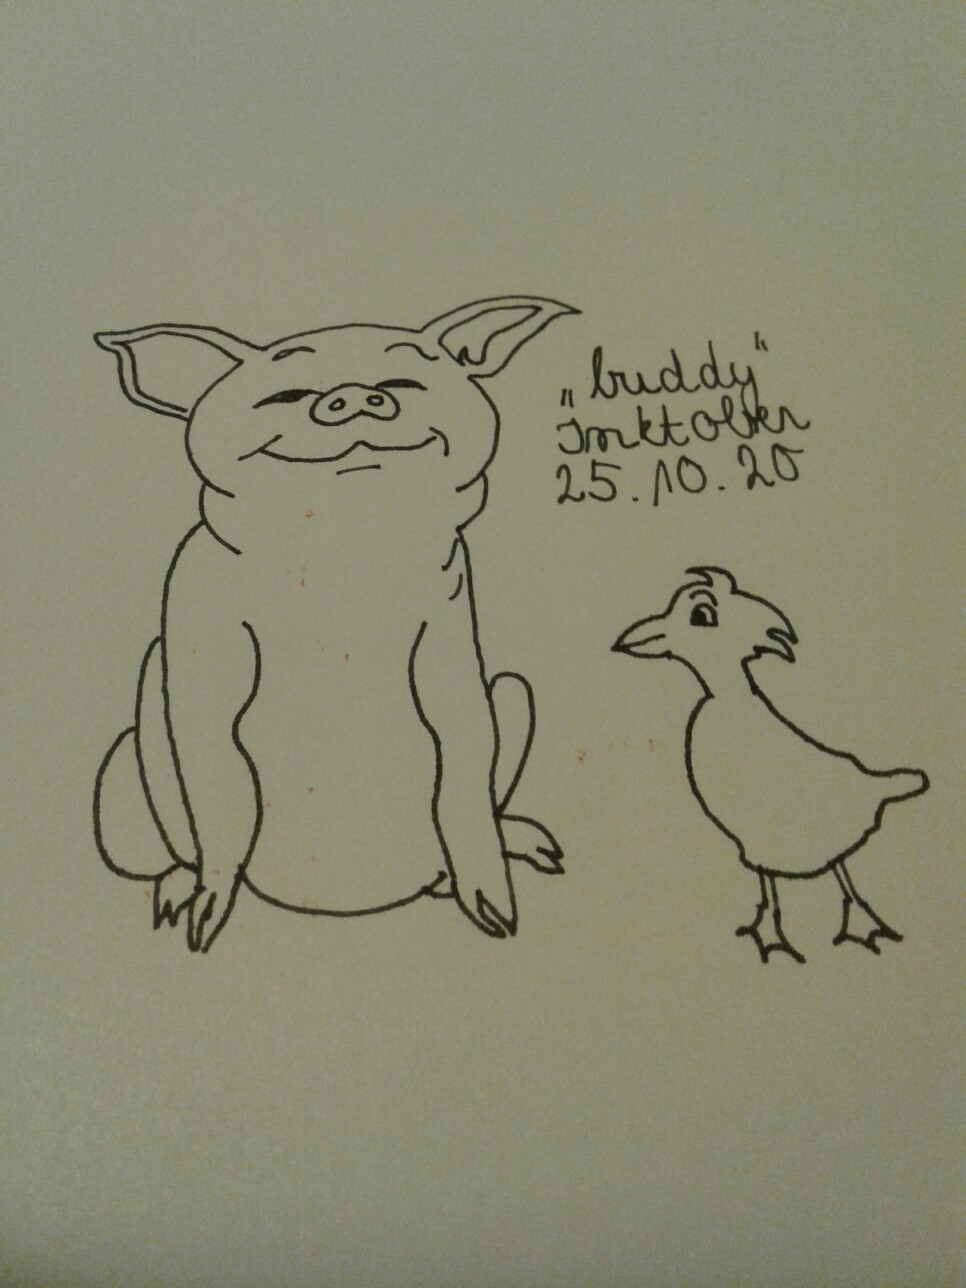 „buddy"
Inktober
25.10.20